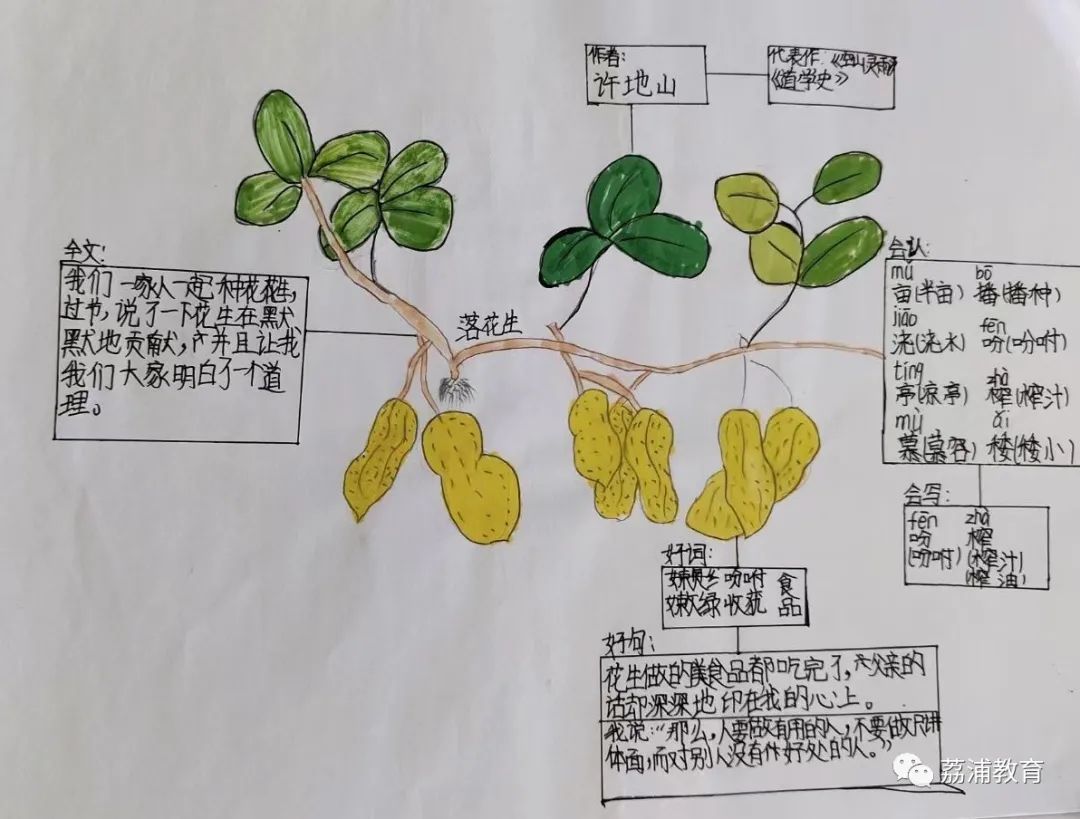 作者:
许地山
代表作:《空山灵雨》
《道学史》
全文:
我们一家人一起种花花生,
过节,说了一下花生在默
默地贡献,并且让我
我们大家明白了一个道
理。
落花生
会认:
mǔ bō
亩(半亩) 播(播种)
jiāo fēn
浇(浇水) 吩(吩咐)
tíng zhà
亭(凉亭) 榨(榨汁)
mù ǎi
慕(慕名) 矮(矮小)
会写:
fēn zhà
吩 榨
(吩咐) (榨汁)
(榨油)
好词:
吩咐 食
嫩绿 收获 品
好句:
花生做的食品都吃完了,父亲的
话却深深地印在我的心上。
我说:“那么,人要做有用的人,不要做只讲
体面,而对别人没有什好处的人。”
荔浦教育